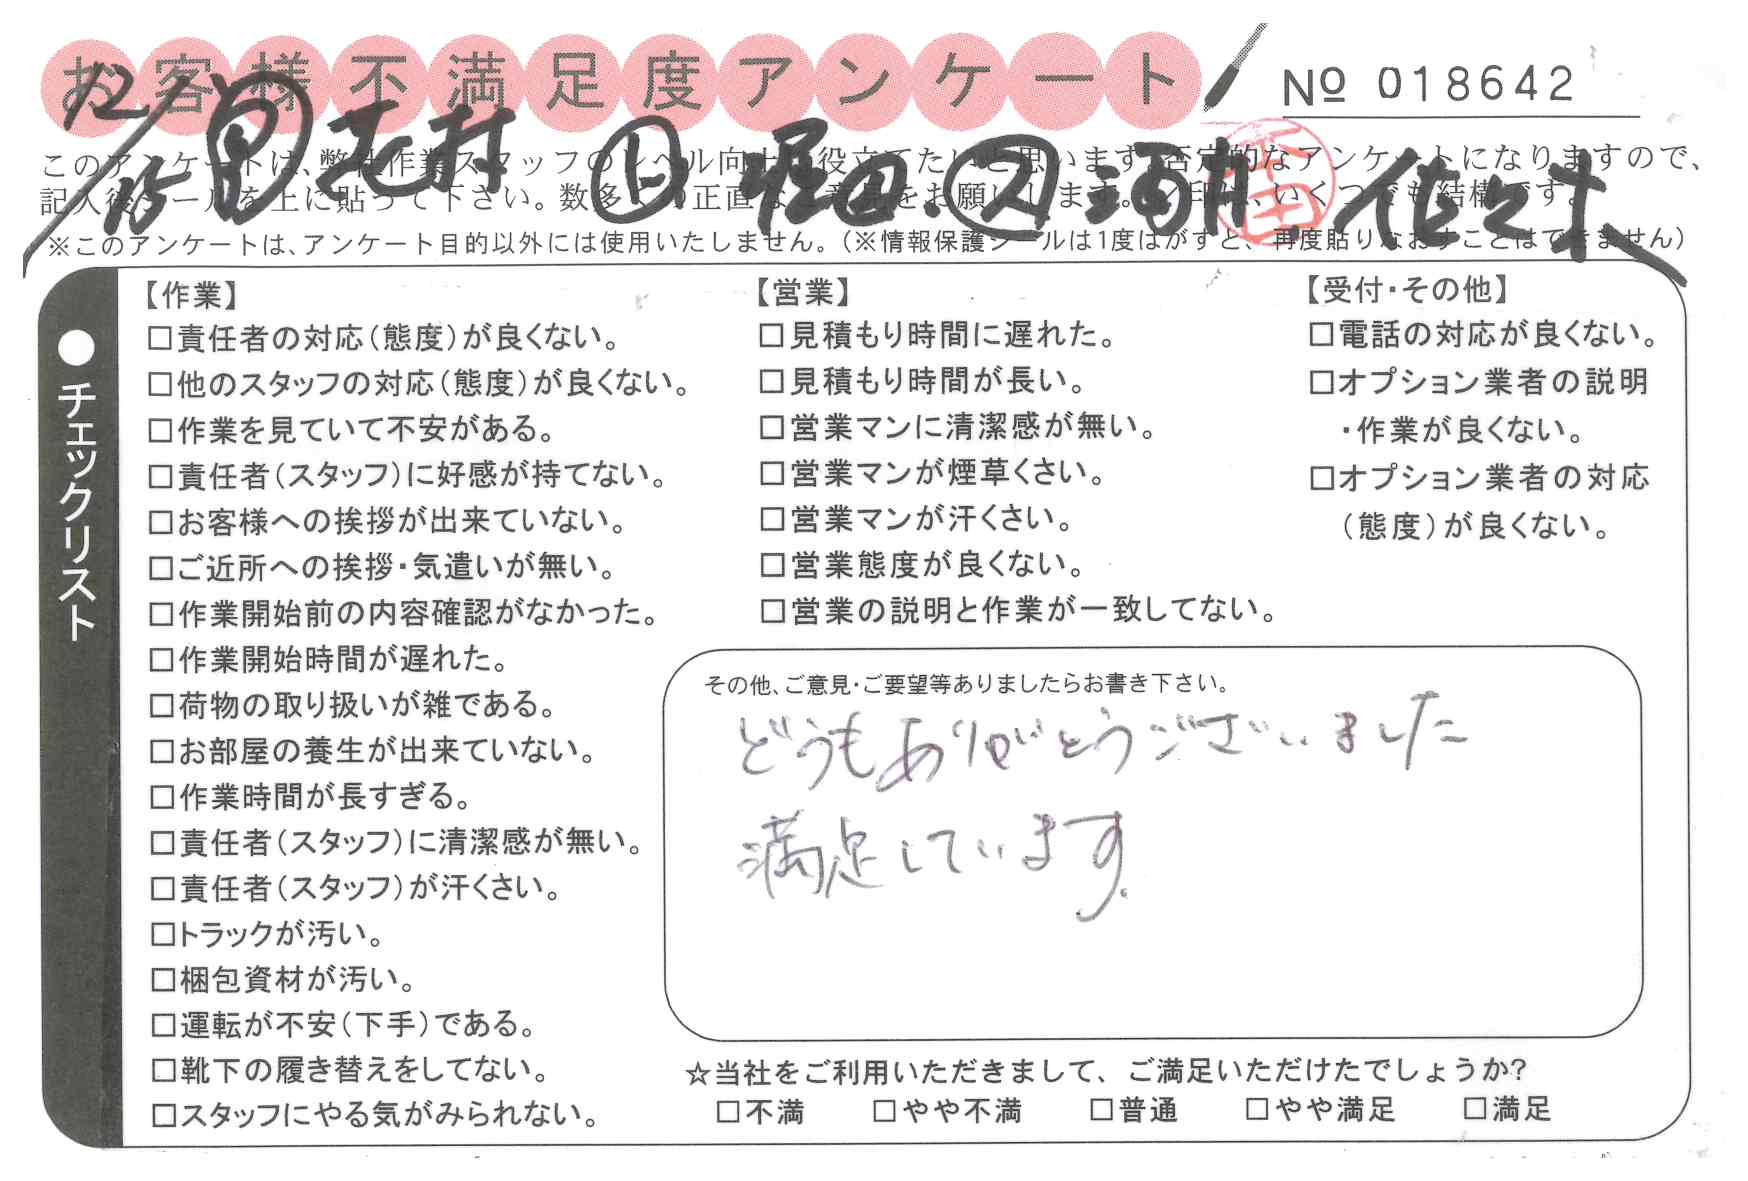 お客様不満足度アンケート
№ 018642
12/15
このアンケートは、弊社作業スタッフのレベル向上に役立てたいと思います。否定的なアンケートになりますので、
記入後シールを上に貼って下さい。数多くの正直なご意見をお願いします。✓印は、いくつでも結構です。
※このアンケートは、アンケート目的以外には使用いたしません。（※情報保護シールは1度はがすと、再度貼りなおすことはできません）
●チェックリスト
【作業】
□責任者の対応（態度）が良くない。
□他のスタッフの対応（態度）が良くない。
□作業を見ていて不安がある。
□責任者（スタッフ）に好感が持てない。
□お客様への挨拶が出来ていない。
□ご近所への挨拶・気遣いが無い。
□作業開始前の内容確認がなかった。
□作業開始時間が遅れた。
□荷物の取り扱いが雑である。
□お部屋の養生が出来ていない。
□作業時間が長すぎる。
□責任者（スタッフ）に清潔感が無い。
□責任者（スタッフ）が汗くさい。
□トラックが汚い。
□梱包資材が汚い。
□運転が不安（下手）である。
□靴下の履き替えをしてない。
□スタッフにやる気がみられない。
【営業】
□見積もり時間に遅れた。
□見積もり時間が長い。
□営業マンに清潔感が無い。
□営業マンが煙草くさい。
□営業マンが汗くさい。
□営業態度が良くない。
□営業の説明と作業が一致してない。
【受付・その他】
□電話の対応が良くない。
□オプション業者の説明
・作業が良くない。
□オプション業者の対応
（態度）が良くない。
その他、ご意見・ご要望等ありましたらお書き下さい。
どうもありがとうございました
満足しています.
☆当社をご利用いただきまして、ご満足いただけたでしょうか?
□不満 □やや不満 □普通 □やや満足 □満足